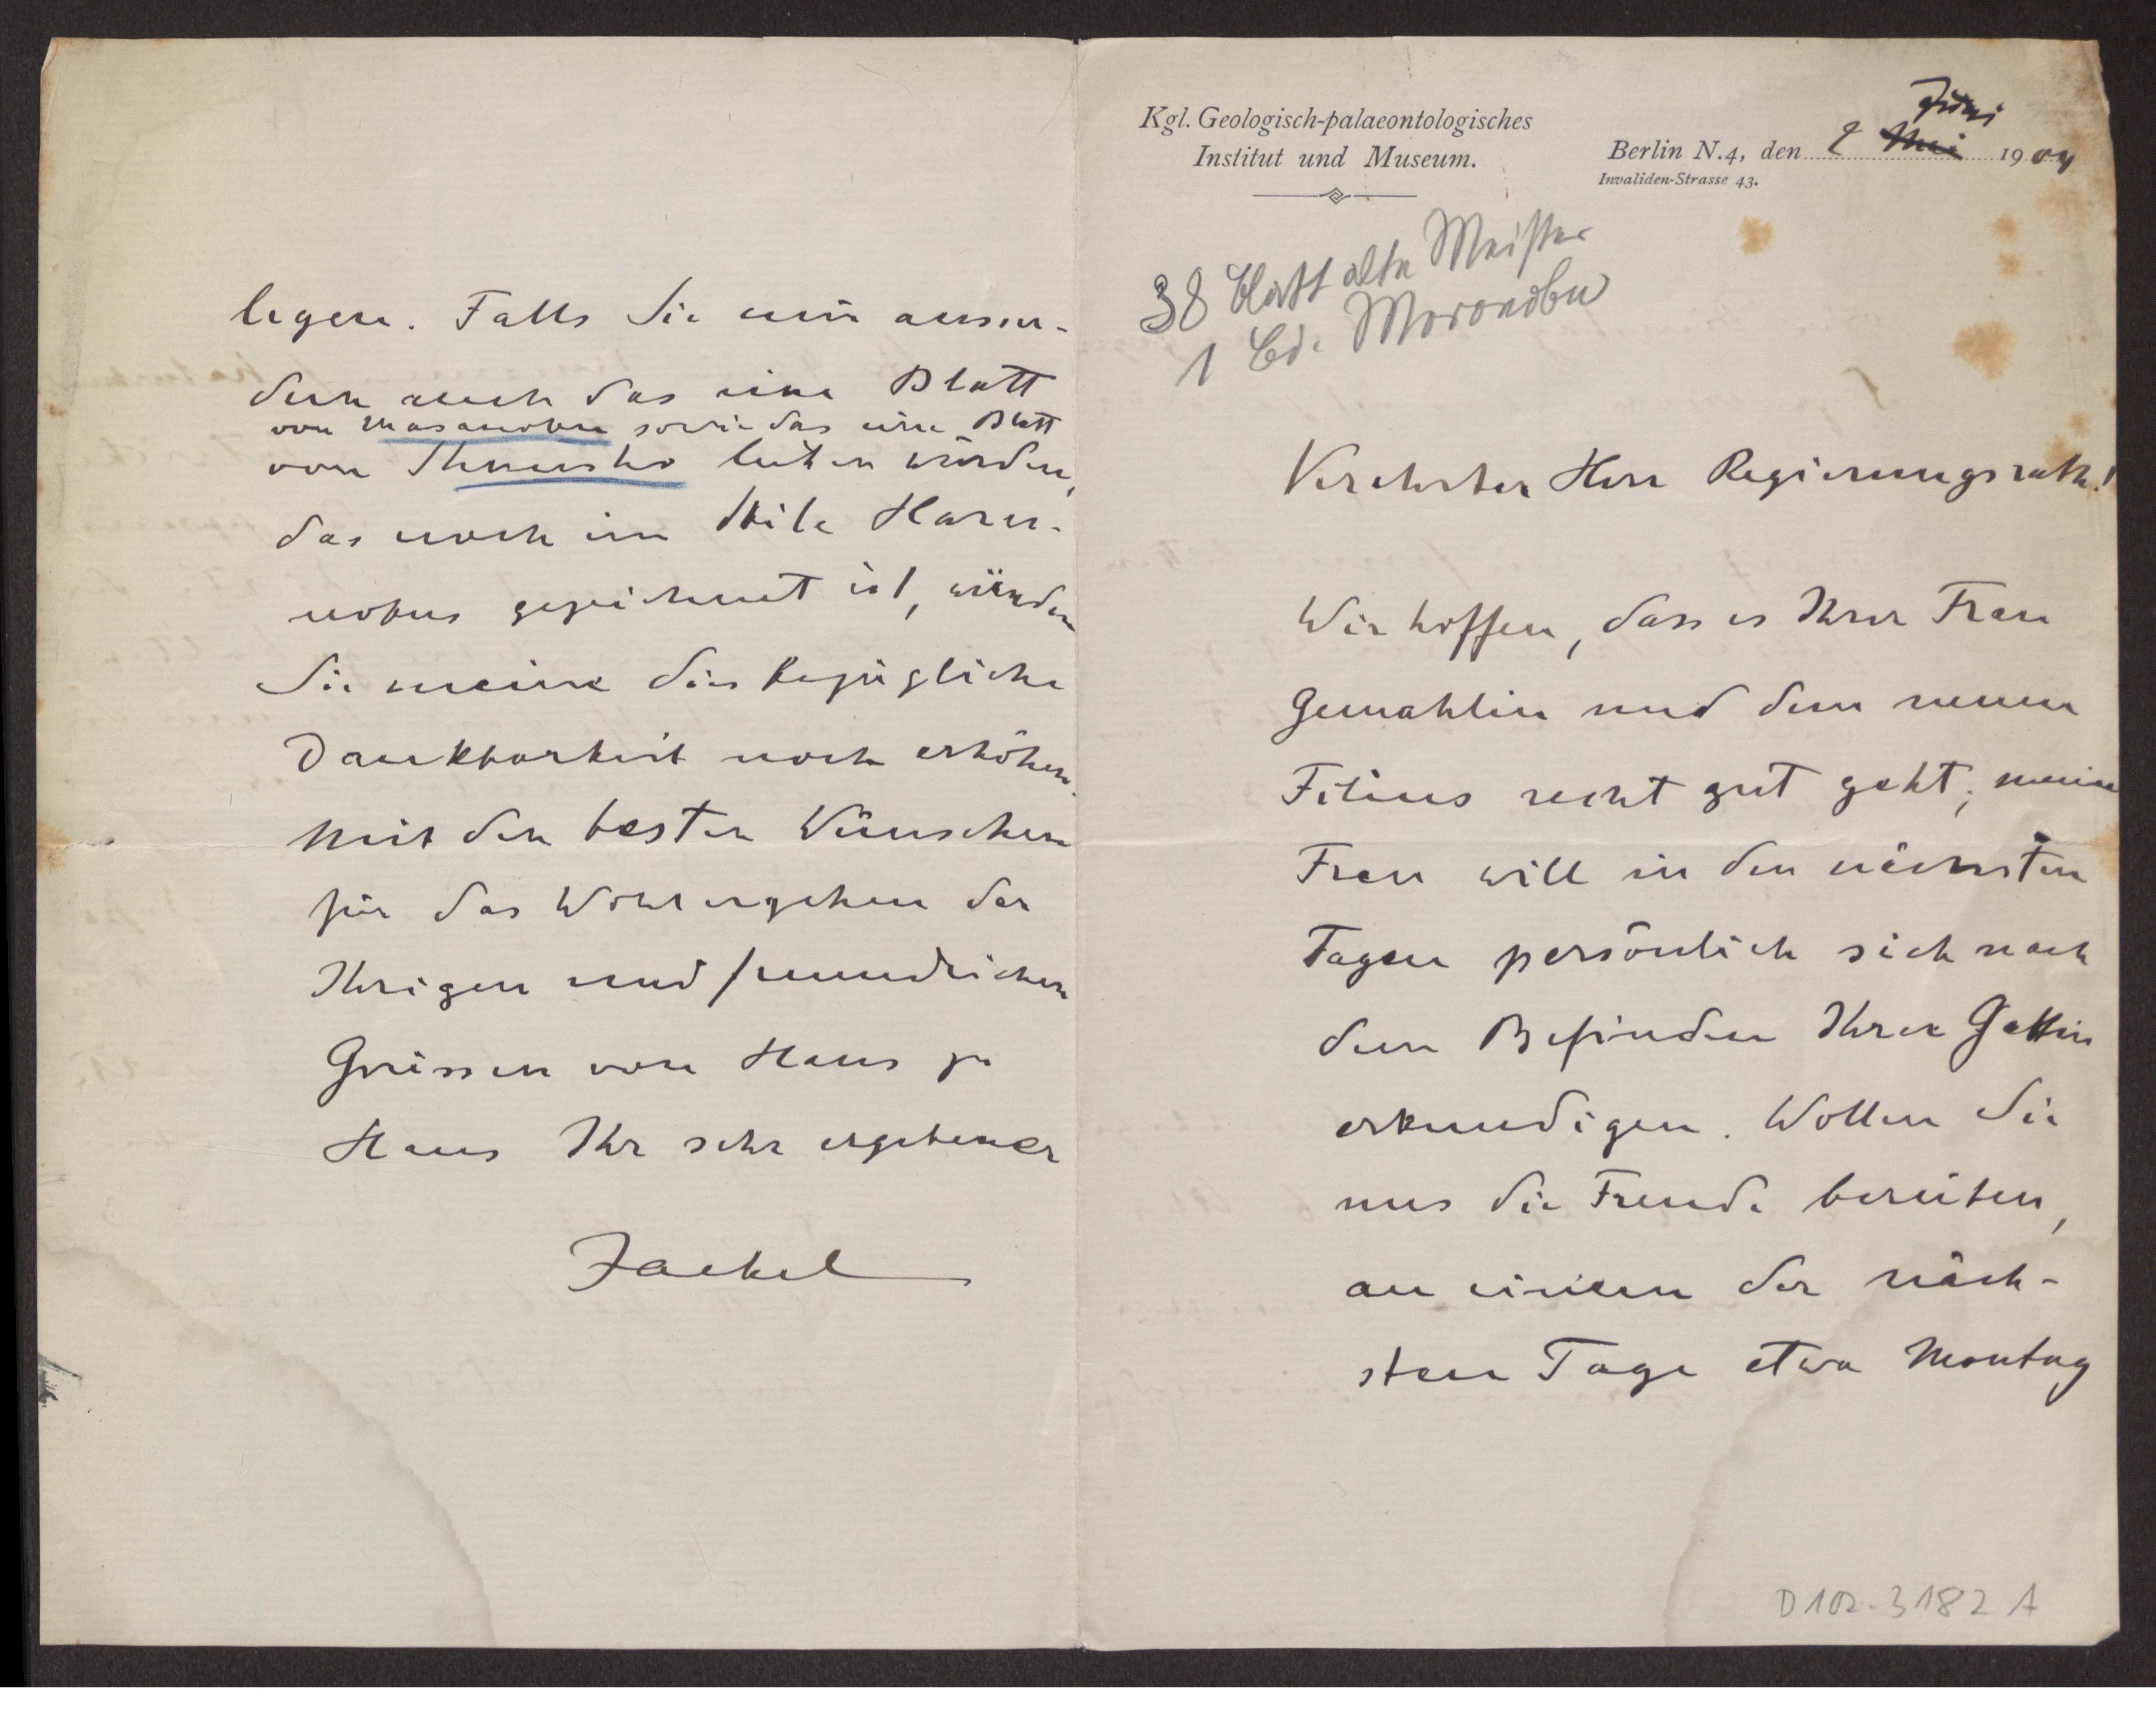 Kgl. Geologisch-palaeontologisches
Institut und Museum.
Juni
Berlin N.4, den 2 Mai 1904
Invaliden-Strasse 43.
38 Blatt alte Meister
1 Bd. Moronobu
Verehrter Herr Regierungsrath!
Wir hoffen, dass es Ihrer Frau
Gemahlin und dem neuen
Filius recht gut geht; meine
Frau will in den nächsten
Tagen persönlich sich nach
dem Befinden Ihrer Gattin
erkundigen. Wollen Sie
uns die Freude bereiten,
an einem der näch-
sten Tage etwa Montag
D102-3182 A
legen. Falls Sie mir ausser-
dem auch das eine Blatt
von Masanobu sowie das eine Blatt
von Shunsho leihen würden,
das noch im Stile Haru-
nobus gezeichnet ist, würden
Sie meine dies bezügliche
Dankbarkeit noch erhöhen.
Mit den besten Wünschen
für das Wohlergehen der
Ihrigen und freundlichen
Grüssen von Haus zu
Haus Ihr sehr ergebener
Jaekel